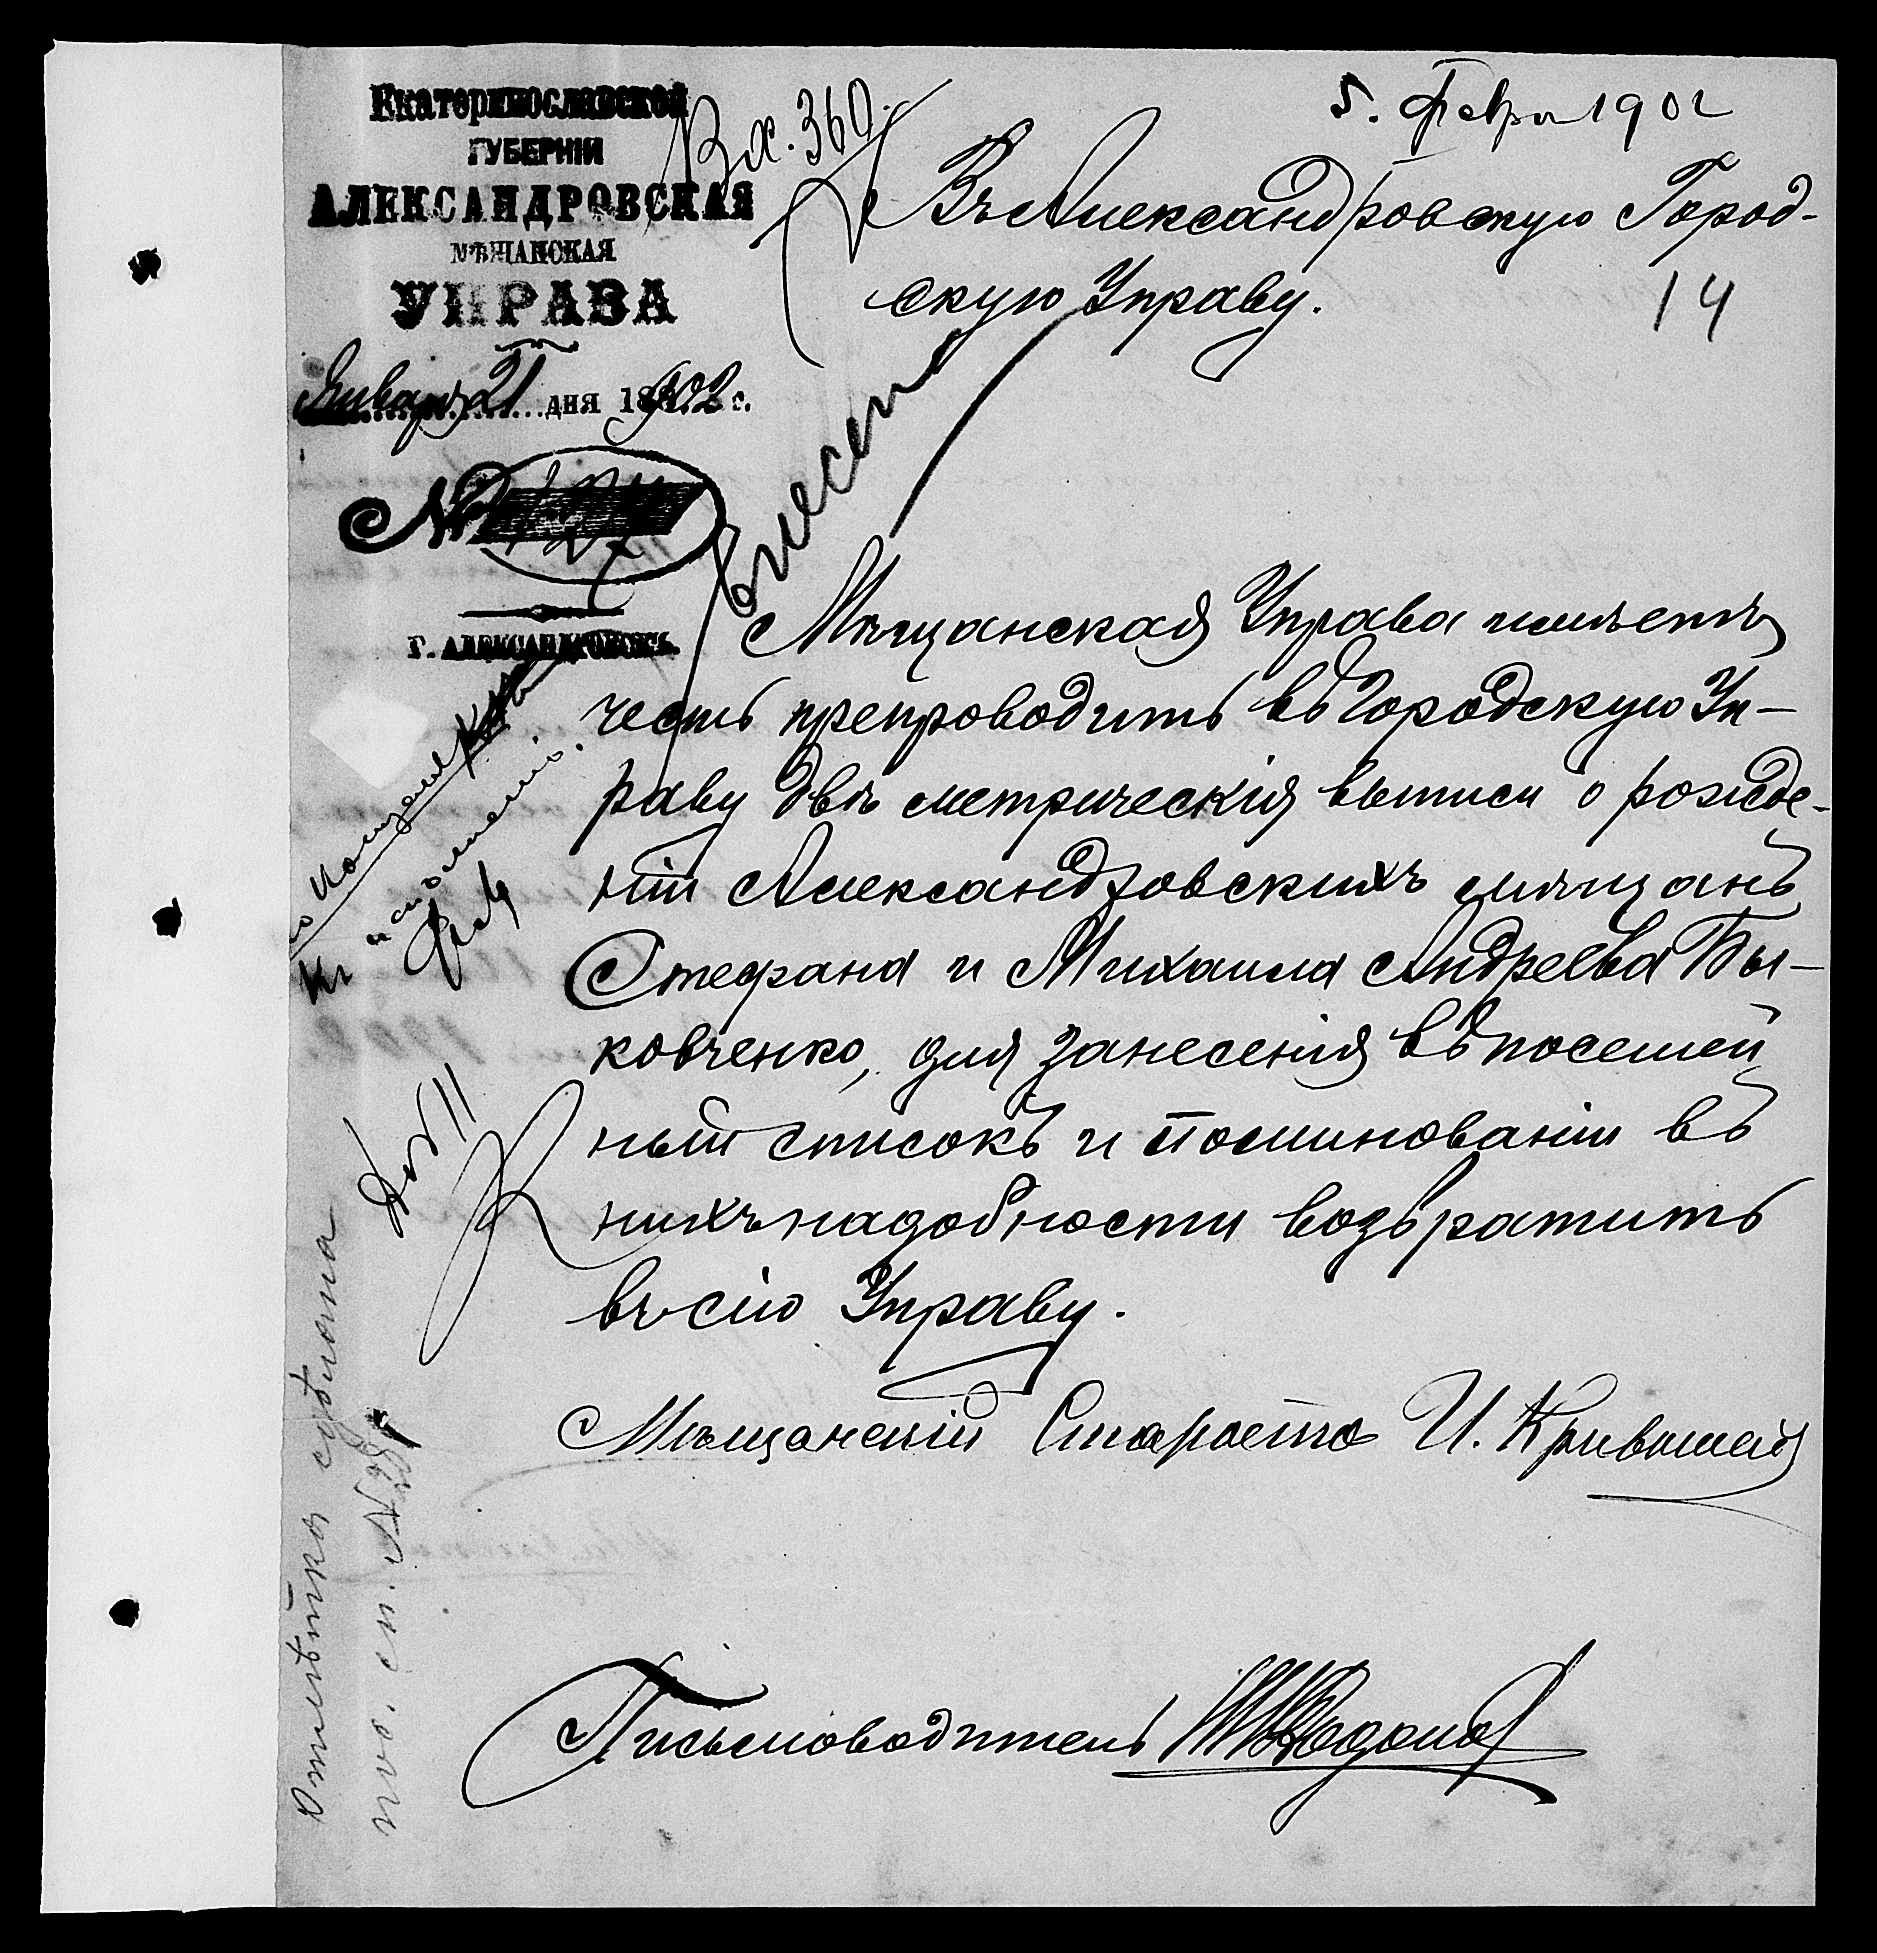 Екатеринославской
ГУБЕРНІИ
АЛЕКСАНДРОВСКАЯ
МѢЩАНСКАЯ
УПРАВА
Января 21 дня 1902 г.
№ 127
Г. АЛЕКСАНДРОВСКЪ.
Вх. 360.
5. Февр 1902
Въ Александровскую Город-
скую Управу.
14
внести
Мѣщанская Управа имѣетъ
честь препроводить въ Городскую Уп-
раву двѣ метрическія выписи о рожде-
ніи Александровскихъ мѣщанъ
Стефана и Михаила Андреева Бы-
ковченко, для занесенія въ посемей
ный списокъ и поминованіи въ
нихъ надобности возвратить
въ сію Управу.
Мѣщанскій Староста И. Кривошея
Письмоводитель
Къ
исполненію.
№ 11
Отмѣтка сдѣлана
по с. сп. №